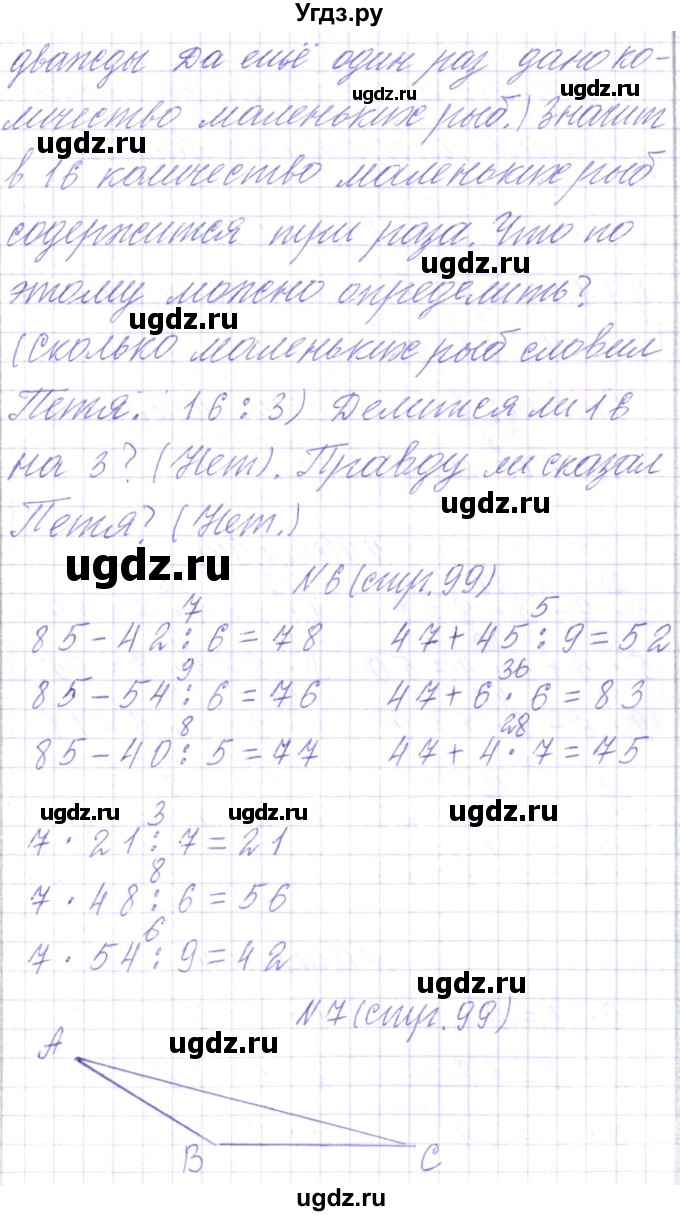 Угдз.ру
дважды да ещё один раз дано ко-
ugdz.ru ugdz.ru
личество маленьких рыб.) Значит
ugdz.ru
в 16 количество маленьких рыб
содержится три раза. Что по
ugdz.ru
этому можно определить?
ugdz.ru
(Сколько маленьких рыб словил
Петя. 16 : 3) Делится ли 16
на 3? (Нет). Правду ли сказал
ugdz.ru
Петя? (Нет.)
ugdz.ru
N 6 (стр. 99)
7 5
85 - 42 : 6 = 78 47 + 45 : 9 = 52
9 36
85 - 54 : 6 = 76 47 + 6 · 6 = 83
8 28
85 - 40 : 5 = 77 47 + 4 · 7 = 75
ugdz.ru ugdz.ru ugdz.ru
3
7 · 21 : 7 = 21
8
7 · 48 : 6 = 56
6
7 · 54 : 9 = 42
ugdz.ru
N 7 (стр. 99)
A ugdz.ru
B C
ugdz.ru